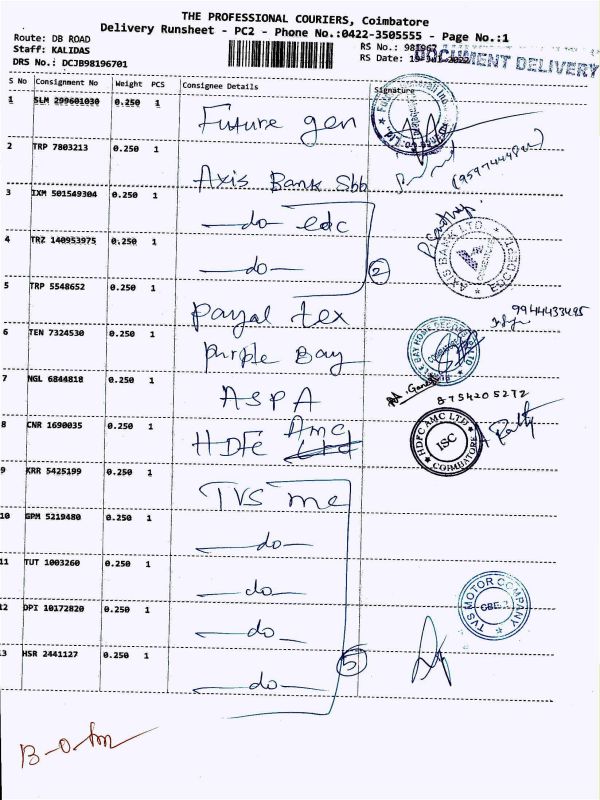 THE PROFESSIONAL COURIERS, Coimbatore
Delivery Runsheet - PC2 - Phone No.:0422-3505555 - Page No.:1
Route: DB ROAD
Staff: KALIDAS RS No.: 981967
DRS No.: DCJB98196701 RS Date:
DOCUMENT DELIVERY
S No Consignment No Weight PCS Consignee Details Signature
1 SLM 299601030 0.250 1 Future gen
2 TRP 7803213 0.250 1 Axis Bank Sbb
3 IXM 501549304 0.250 1 do edc
4 TRZ 140953975 0.250 1 do 2
AXIS BANK LTD
5 TRP 5548652 0.250 1 payal tex
9944433495
6 TEN 7324530 0.250 1 purple Bay
7 NGL 6844818 0.250 1 ASPA
8754205272
8 CNR 1690035 0.250 1 HDFC Amc Ltd
HDFC AMC LTD ISC COIMBATORE
9 KRR 5425199 0.250 1 TVS mc
10 GPM 5219480 0.250 1 do
11 TUT 1003260 0.250 1 do
12 DPI 10172820 0.250 1 do
TVS MOTOR COMPANY
13 HSR 2441127 0.250 1 do 5